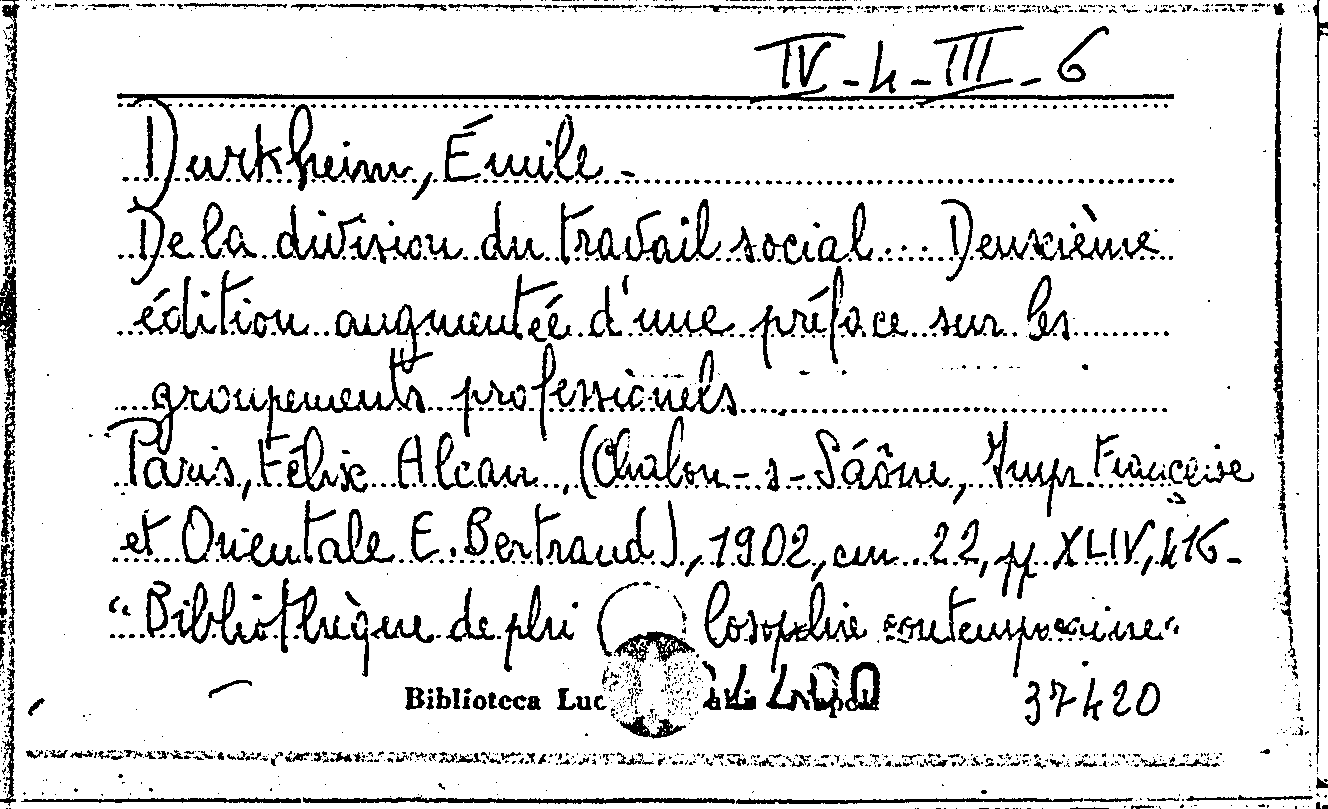 IV-4-III-6
Durkheim, Émile -
De la division du travail social... Deuxième
édition augmentée d'une préface sur les
groupements professionels
Paris, Félix Alcan, (Chalon-s-Sáône, Impr Française
et Orientale E. Bertrand), 1902, cm 22, pp XLIV, 416 -
"Bibliothèque de phi losophie contemporaine"
Biblioteca Luc
37420